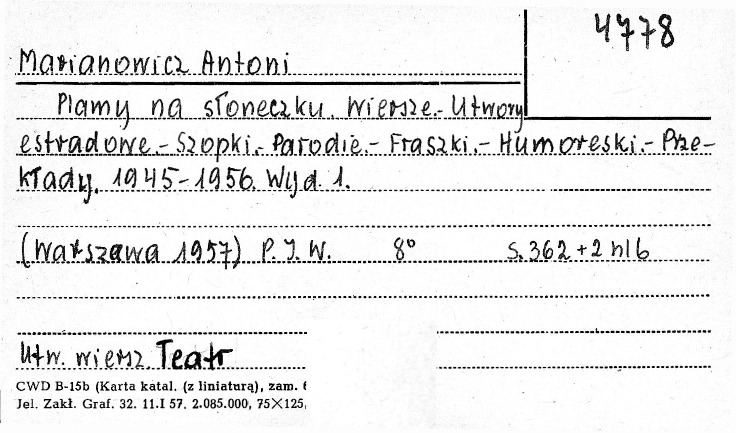 4778
Marianowicz Antoni
Plamy na słoneczku. Wiersze.- Utwory
estradowe.- Szopki.- Parodie.- Fraszki.- Humoreski.- Prze-
kłady. 1945-1956. Wyd. 1.
(Warszawa 1957) P.I.W. 8° s. 362 + 2 nlb
Utw. wiersz. Teatr
CWD B-15b (Karta katal. (z liniaturą), zam.
Jel. Zakł. Graf. 32. 11.I 57. 2.085.000, 75×125,